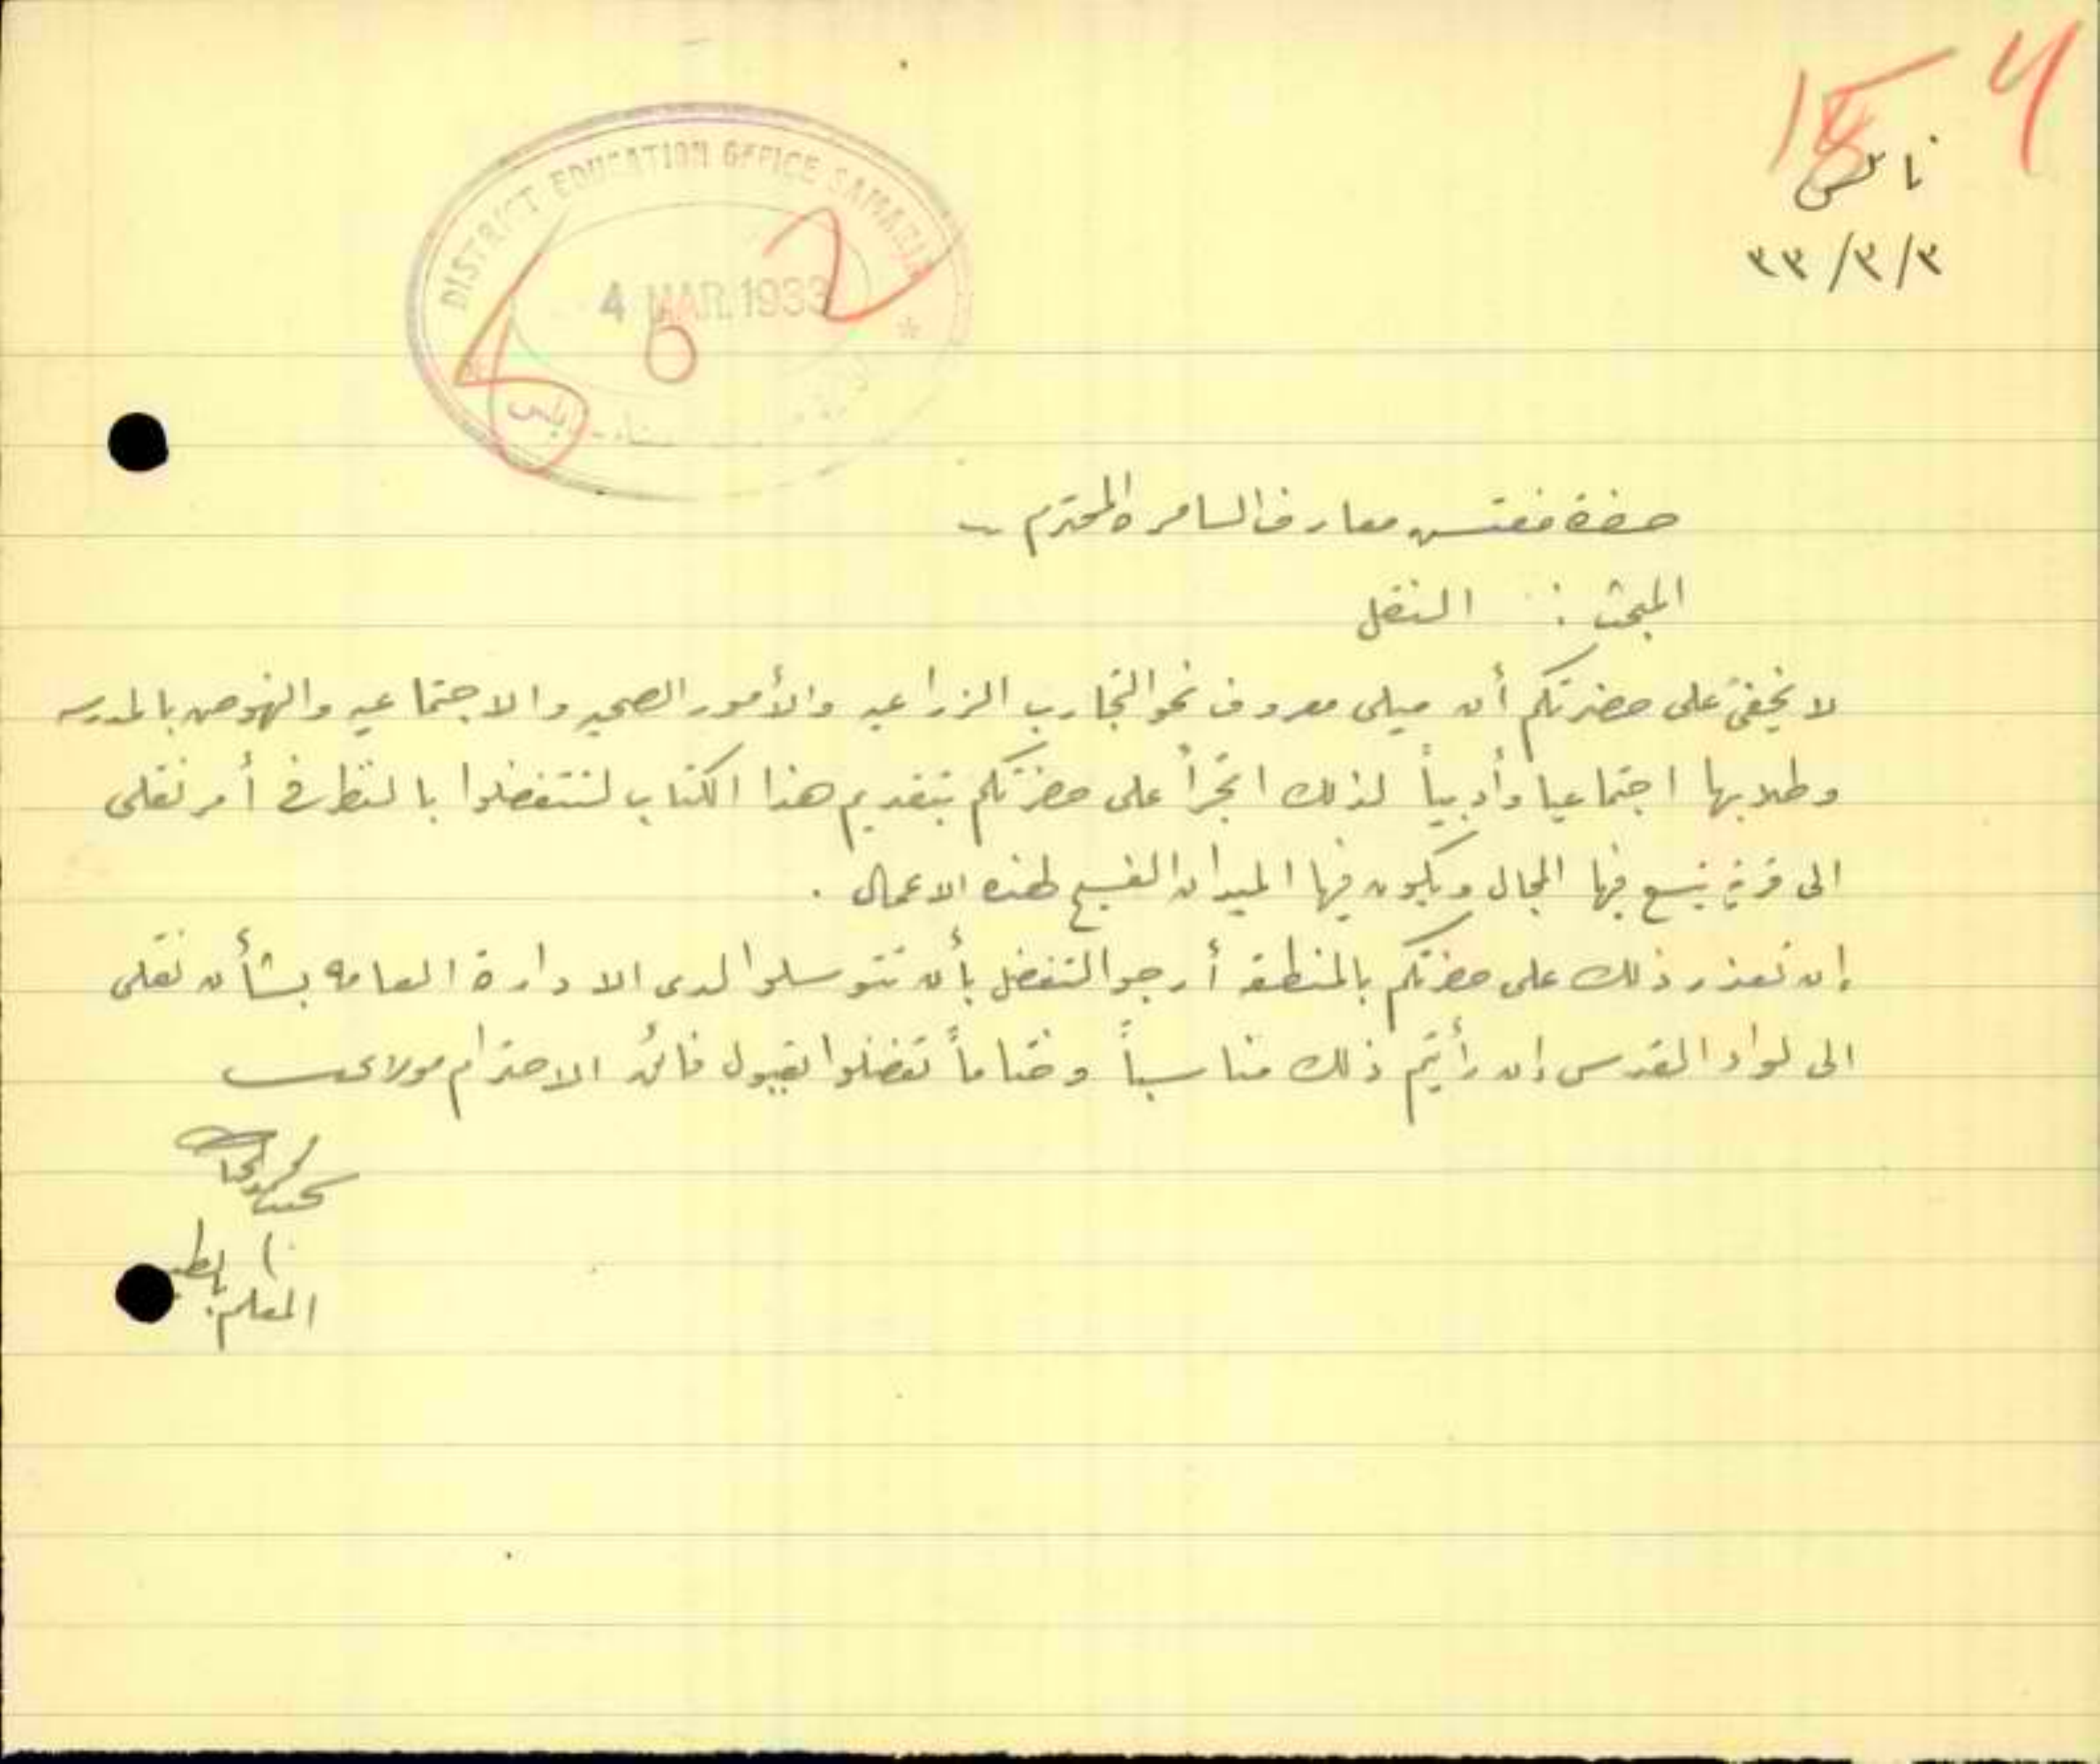 15 4
نابلس
٣/٣/٣٣
DISTRICT EDUCATION OFFICE SAMARIA
4 MAR 1933
نابلس
5 0 2
حضرة مفتش معارف السامره المحترم
المبحث : النقل
لا يخفى على حضرتكم أن ميلي معروف نحو التجارب الزراعيه والأمور الصحيه والاجتماعيه والنهوض بالمدرسه
وطلابها اجتماعيا وأدبياً لذلك اتجرأ على حضرتكم بتقديم هذا الكتاب لتتفضلوا بالنظر في أمر نقلي
الى قرية يتسع فيها المجال ويكون فيها الميدان الفسيح لهذه الاعمال .
إن تعذر ذلك على حضرتكم بالمنطقه أرجو التفضل بأن تتوسلوا لدى الادارة العامه بشأن نقلي
الى لواء القدس إن رأيتم ذلك مناسباً وختاماً تفضلوا بقبول فائق الاحترام مولاي
المعلم